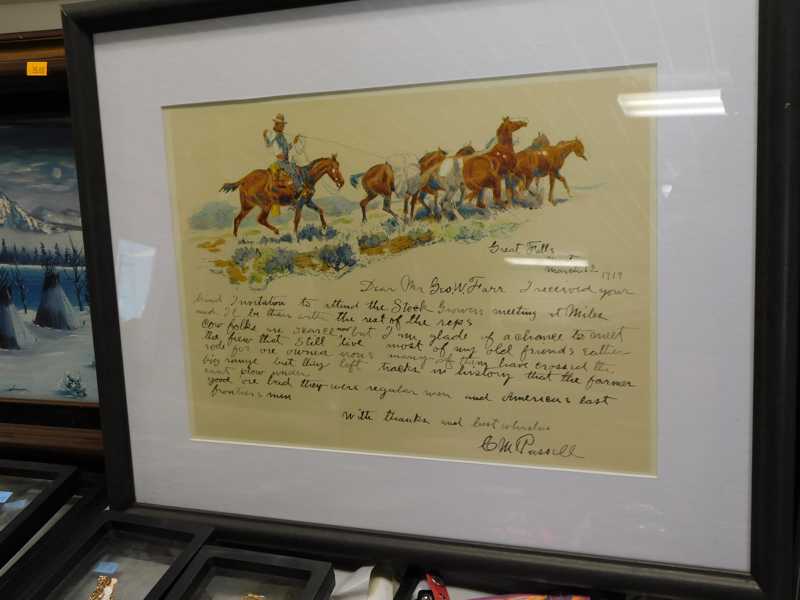 Great Falls
March 12 1919
Dear Mr Geo. W. Farr I received your
kind Invitation to attend the Stock Growers meeting at Miles
and Il be there with the rest of the reps
Cow folks are scarce now but I am glade of a chance to meet
the few that still live most of my old friends eather
rode for ore owned irons many of them have crossed the
big range but they left tracks in history that the farmer
cant plow under
good ore bad they were regular men and Americas last
frontiers men
With thanks and best whishes
C M Russell